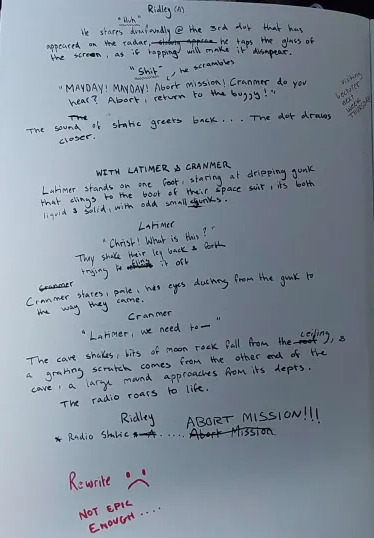 Ridley (A)
"Huh"
He stares dumfoundly @ the 3rd dot that has
appeared on the radar, he taps the glass of
the screen, as if tapping will make it disapear.
"Shit", he scrambles
"MAYDAY! MAYDAY! Abort mission! Cranmer do you
hear? Abort, return to the buggy!"
The
The sound of static greets back... The dot draws
closer.
WITH LATIMER & CRANMER
Latimer stands on one foot, staring at dripping gunk
that clings to the boot of their space suit, its both
liquid & solid, with odd small chunks.
Latimer
"Christ! What is this?"
They shake their leg back & forth
trying to fling it off
Cranmer
Cranmer stares, pale, hes eyes ducking from the gunk to
the way they came.
Cranmer
"Latimer, we need to—"
The cave shakes, bits of moon rock fall from the roof ceiling, &
a grating scratch comes from the other end of the
cave, a large mound approaches from its depts.
The radio roars to life.
Ridley
* Radio Static * ..... Abort Mission ABORT MISSION!!!
Rewrite
NOT EPIC
ENOUGH....
visiting
lecturer
next
week